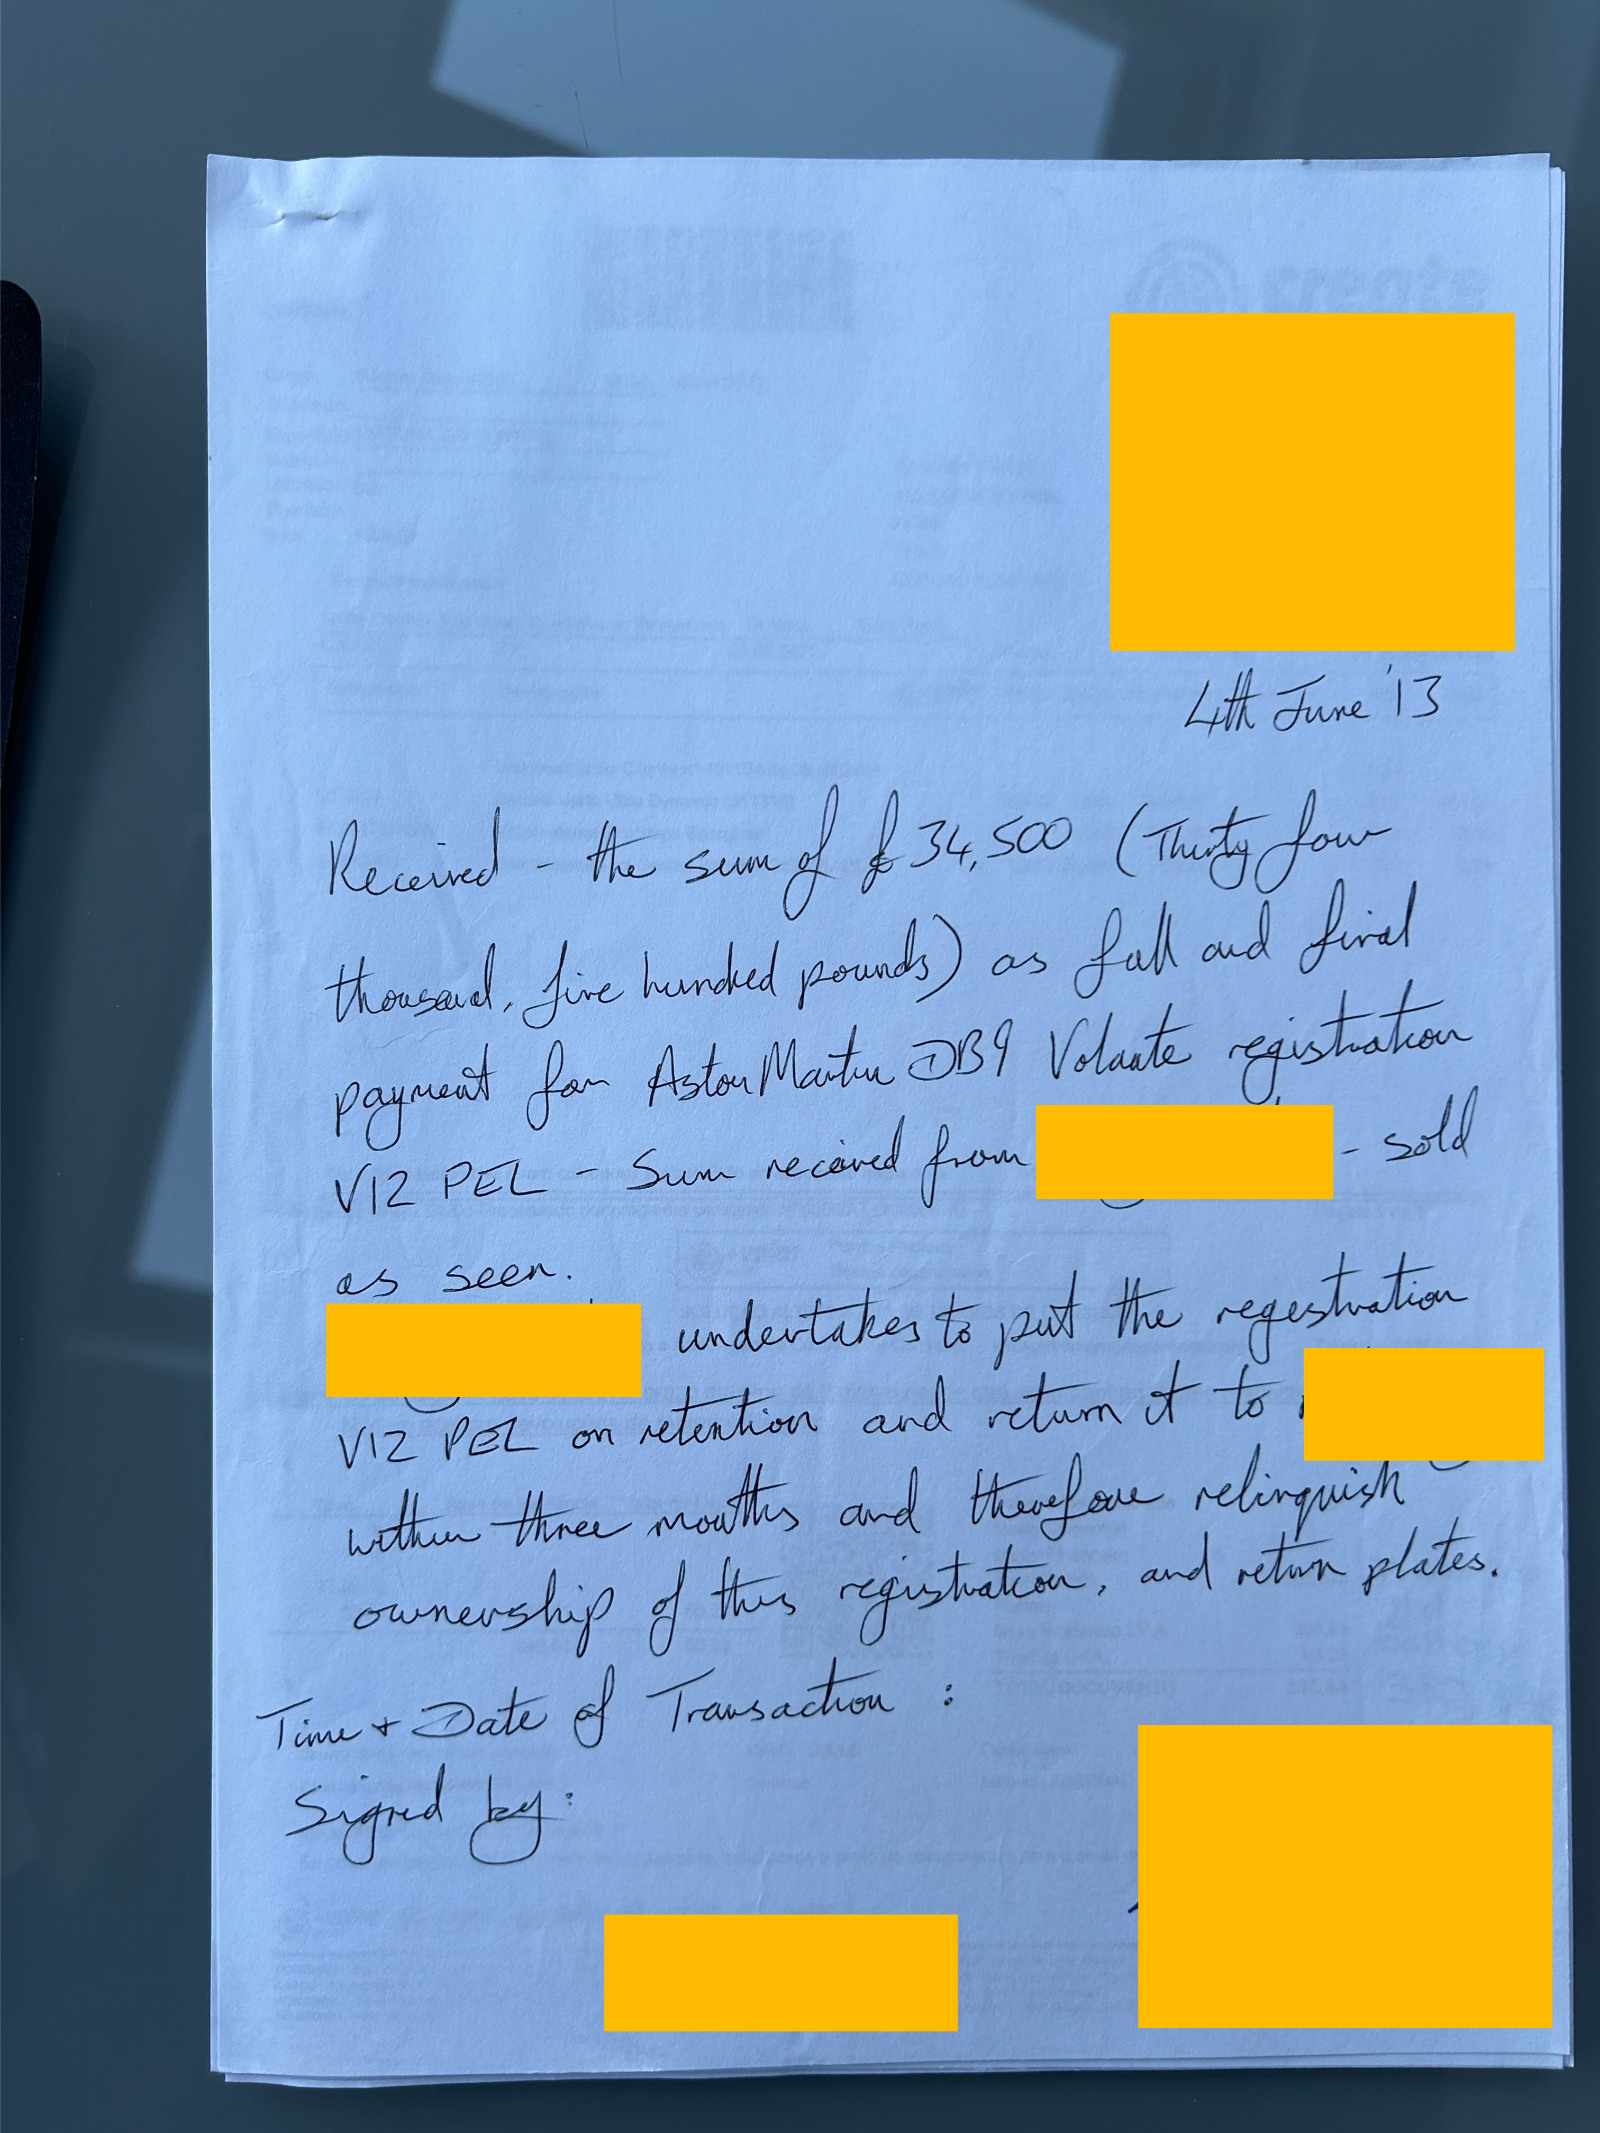 4th June '13
Received - the sum of £34,500 (Thirty four
thousand, five hundred pounds) as full and final
payment for Aston Martin DB9 Volante registration
V12 PEL - Sum received from - sold
as seen.
undertakes to put the regestration
V12 PEL on retention and return it to
within three months and therefore relinquish
ownership of this registration, and return plates.
Time + Date of Transaction :
Signed by: